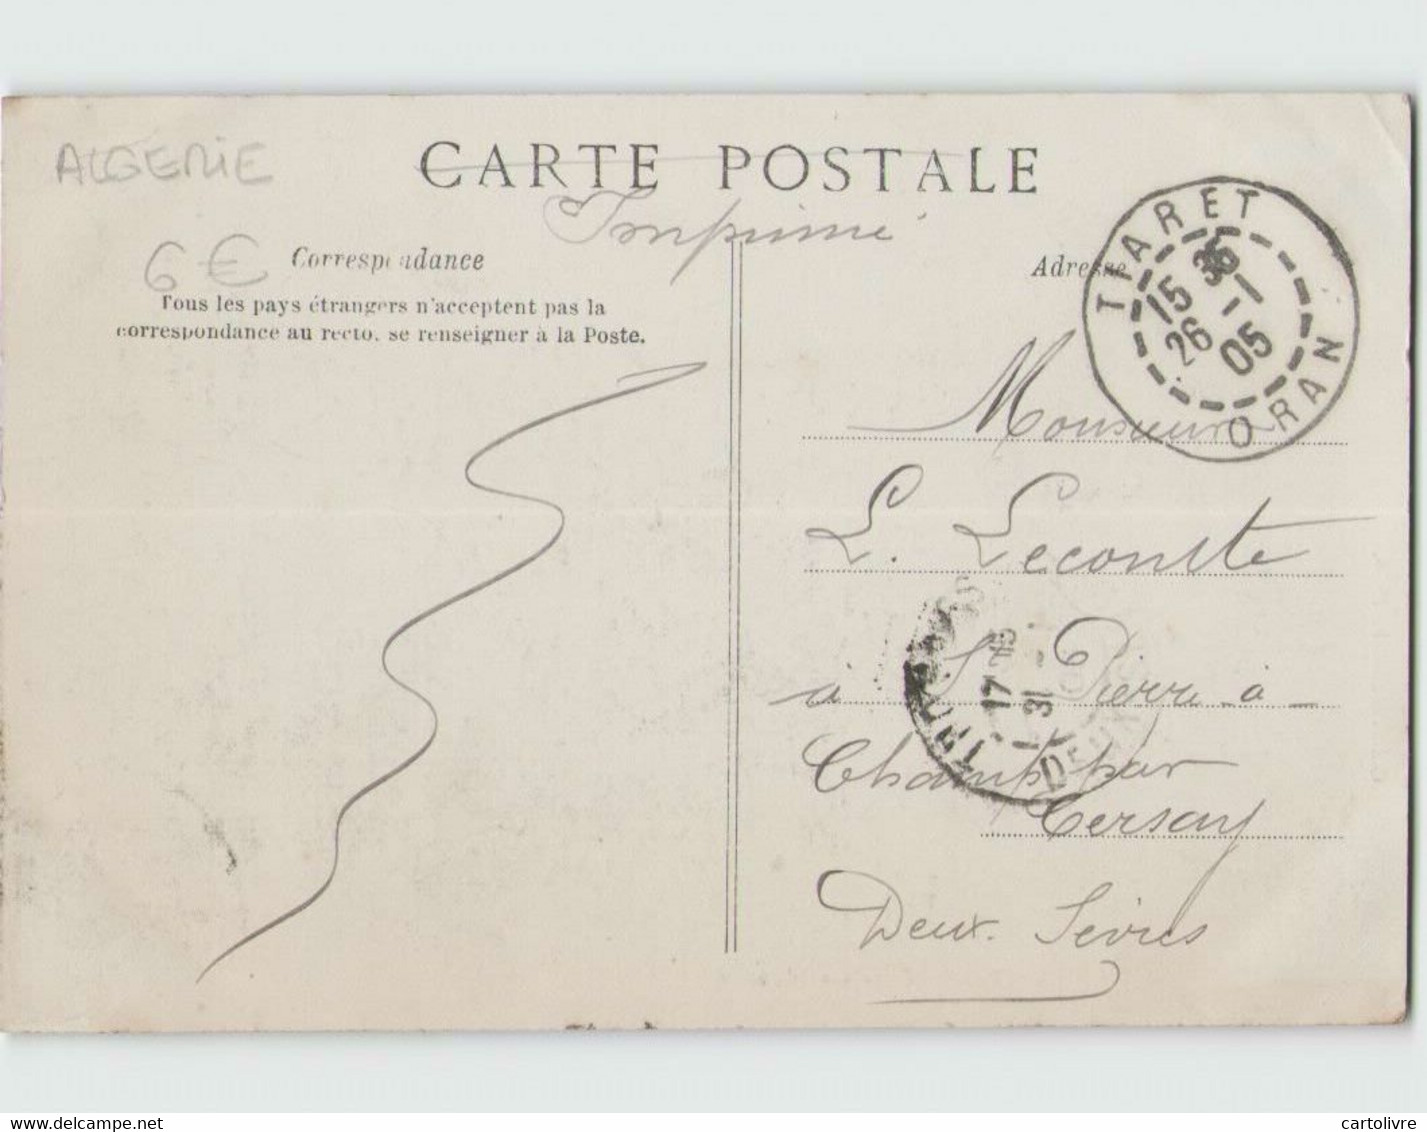 ALGERIE
CARTE POSTALE
Imprimé
6 €
Correspondance
Adresse
Tous les pays étrangers n'acceptent pas la
correspondance au recto, se renseigner à la Poste.
TIARET
15 35
26 -1
05
ORAN
Monsieur
L. Lecomte
à St Pierre - à -
Champ par
Cersay
Deux. Sèvres
17
31
DEUX
delcampe.net
cartolivre